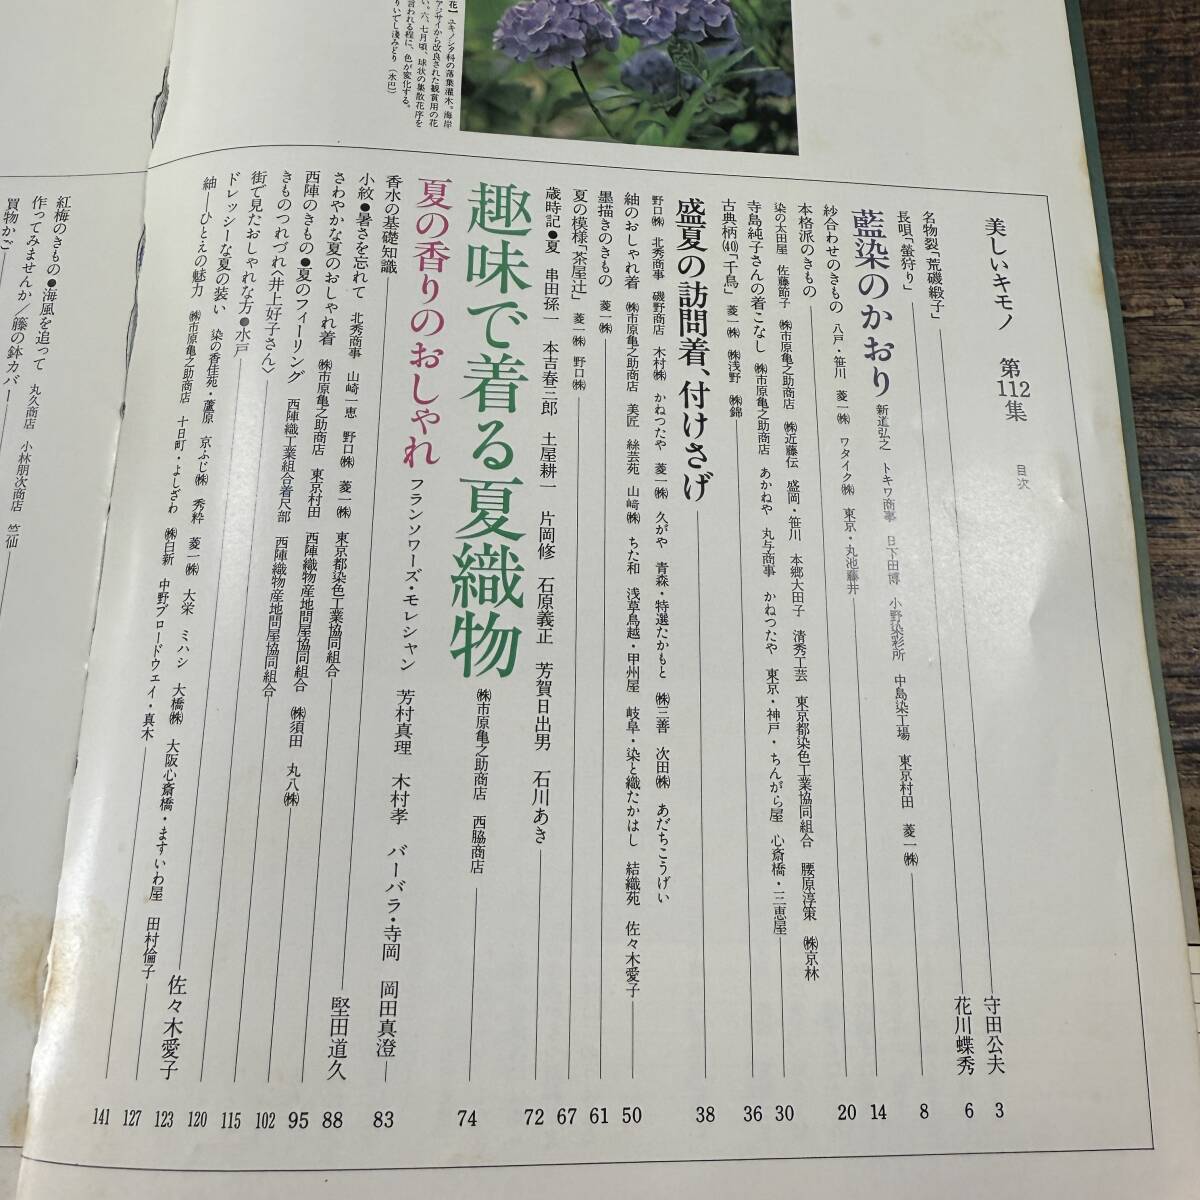 花】ユキノシタ科の落葉灌木。海岸
アジサイから改良された観賞用の花
い。六、七月頃、球状の集散花序を
言われる程に、色が変化する。
りいでし浅みどり（水巴）
美しいキモノ 第112集 目次
名物裂「荒磯緞子」 守田公夫 3
長唄「螢狩り」 花川蝶秀 6
藍染のかおり 新道弘之 トキワ商事 日下田博 小野染彩所 中島染工場 東京村田 菱一㈱ 8
紗合わせのきもの 八戸・笹川 菱一㈱ ワタイク㈱ 東京・丸池藤井 14
本格派のきもの 20
染の太田屋 佐藤節子 ㈱市原亀之助商店 ㈱近藤伝 盛岡・笹川 本郷大田子 清秀工芸 東京都染色工業協同組合 腰原淳策 ㈱京林
寺島純子さんの着こなし ㈱市原亀之助商店 あかねや 丸与商事 かねつたや 東京・神戸・ちんがら屋 心斎橋・三恵屋 30
古典柄(40)「千鳥」 菱一㈱ ㈱浅野 ㈱錦 36
盛夏の訪問着、付けさげ 38
野口㈱ 北秀商事 磯野商店 木村㈱ かねつたや 菱一㈱ 久がや 青森・特選たかもと ㈱三善 次田㈱ あだちこうげい
紬のおしゃれ着 ㈱市原亀之助商店 美匠 絲芸苑 山崎㈱ ちた和 浅草鳥越・甲州屋 岐阜・染と織たかはし 結織苑 佐々木愛子 50
墨描きのきもの 菱一㈱ 61
夏の模様「茶屋辻」 菱一㈱ 野口㈱ 67
歳時記●夏 串田孫一 本吉春三郎 土屋耕一 片岡修 石原義正 芳賀日出男 石川あき 72
趣味で着る夏織物 ㈱市原亀之助商店 西脇商店 74
夏の香りのおしゃれ フランソワーズ・モレシャン 芳村真理 木村孝 バーバラ・寺岡 岡田真澄
香水の基礎知識 83
小紋●暑さを忘れて 北秀商事 山崎一恵 野口㈱ 菱一㈱ 東京都染色工業協同組合 堅田道久 88
さわやかな夏のおしゃれ着 ㈱市原亀之助商店 東京村田 西陣織物産地問屋協同組合 ㈱須田 丸八㈱ 95
西陣のきもの●夏のフィーリング 西陣織工業組合着尺部 西陣織物産地問屋協同組合 102
きものつれづれ〈井上好子さん〉 115
街で見たおしゃれな方●水戸 120
ドレッシーな夏の装い 染の香佳苑・蘆原 京ふじ㈱ 秀粋 菱一㈱ 大栄 ミハシ 大橋㈱ 大阪心斎橋・ますいわ屋 佐々木愛子 123
紬――ひとえの魅力 ㈱市原亀之助商店 十日町・よしざわ ㈱白新 中野ブロードウェイ・真木 田村倫子 127
141
紅梅のきもの●海風を追って 丸久商店 小林朋次商店 竺仙
作ってみませんか／籐の鉢カバー
買物かご